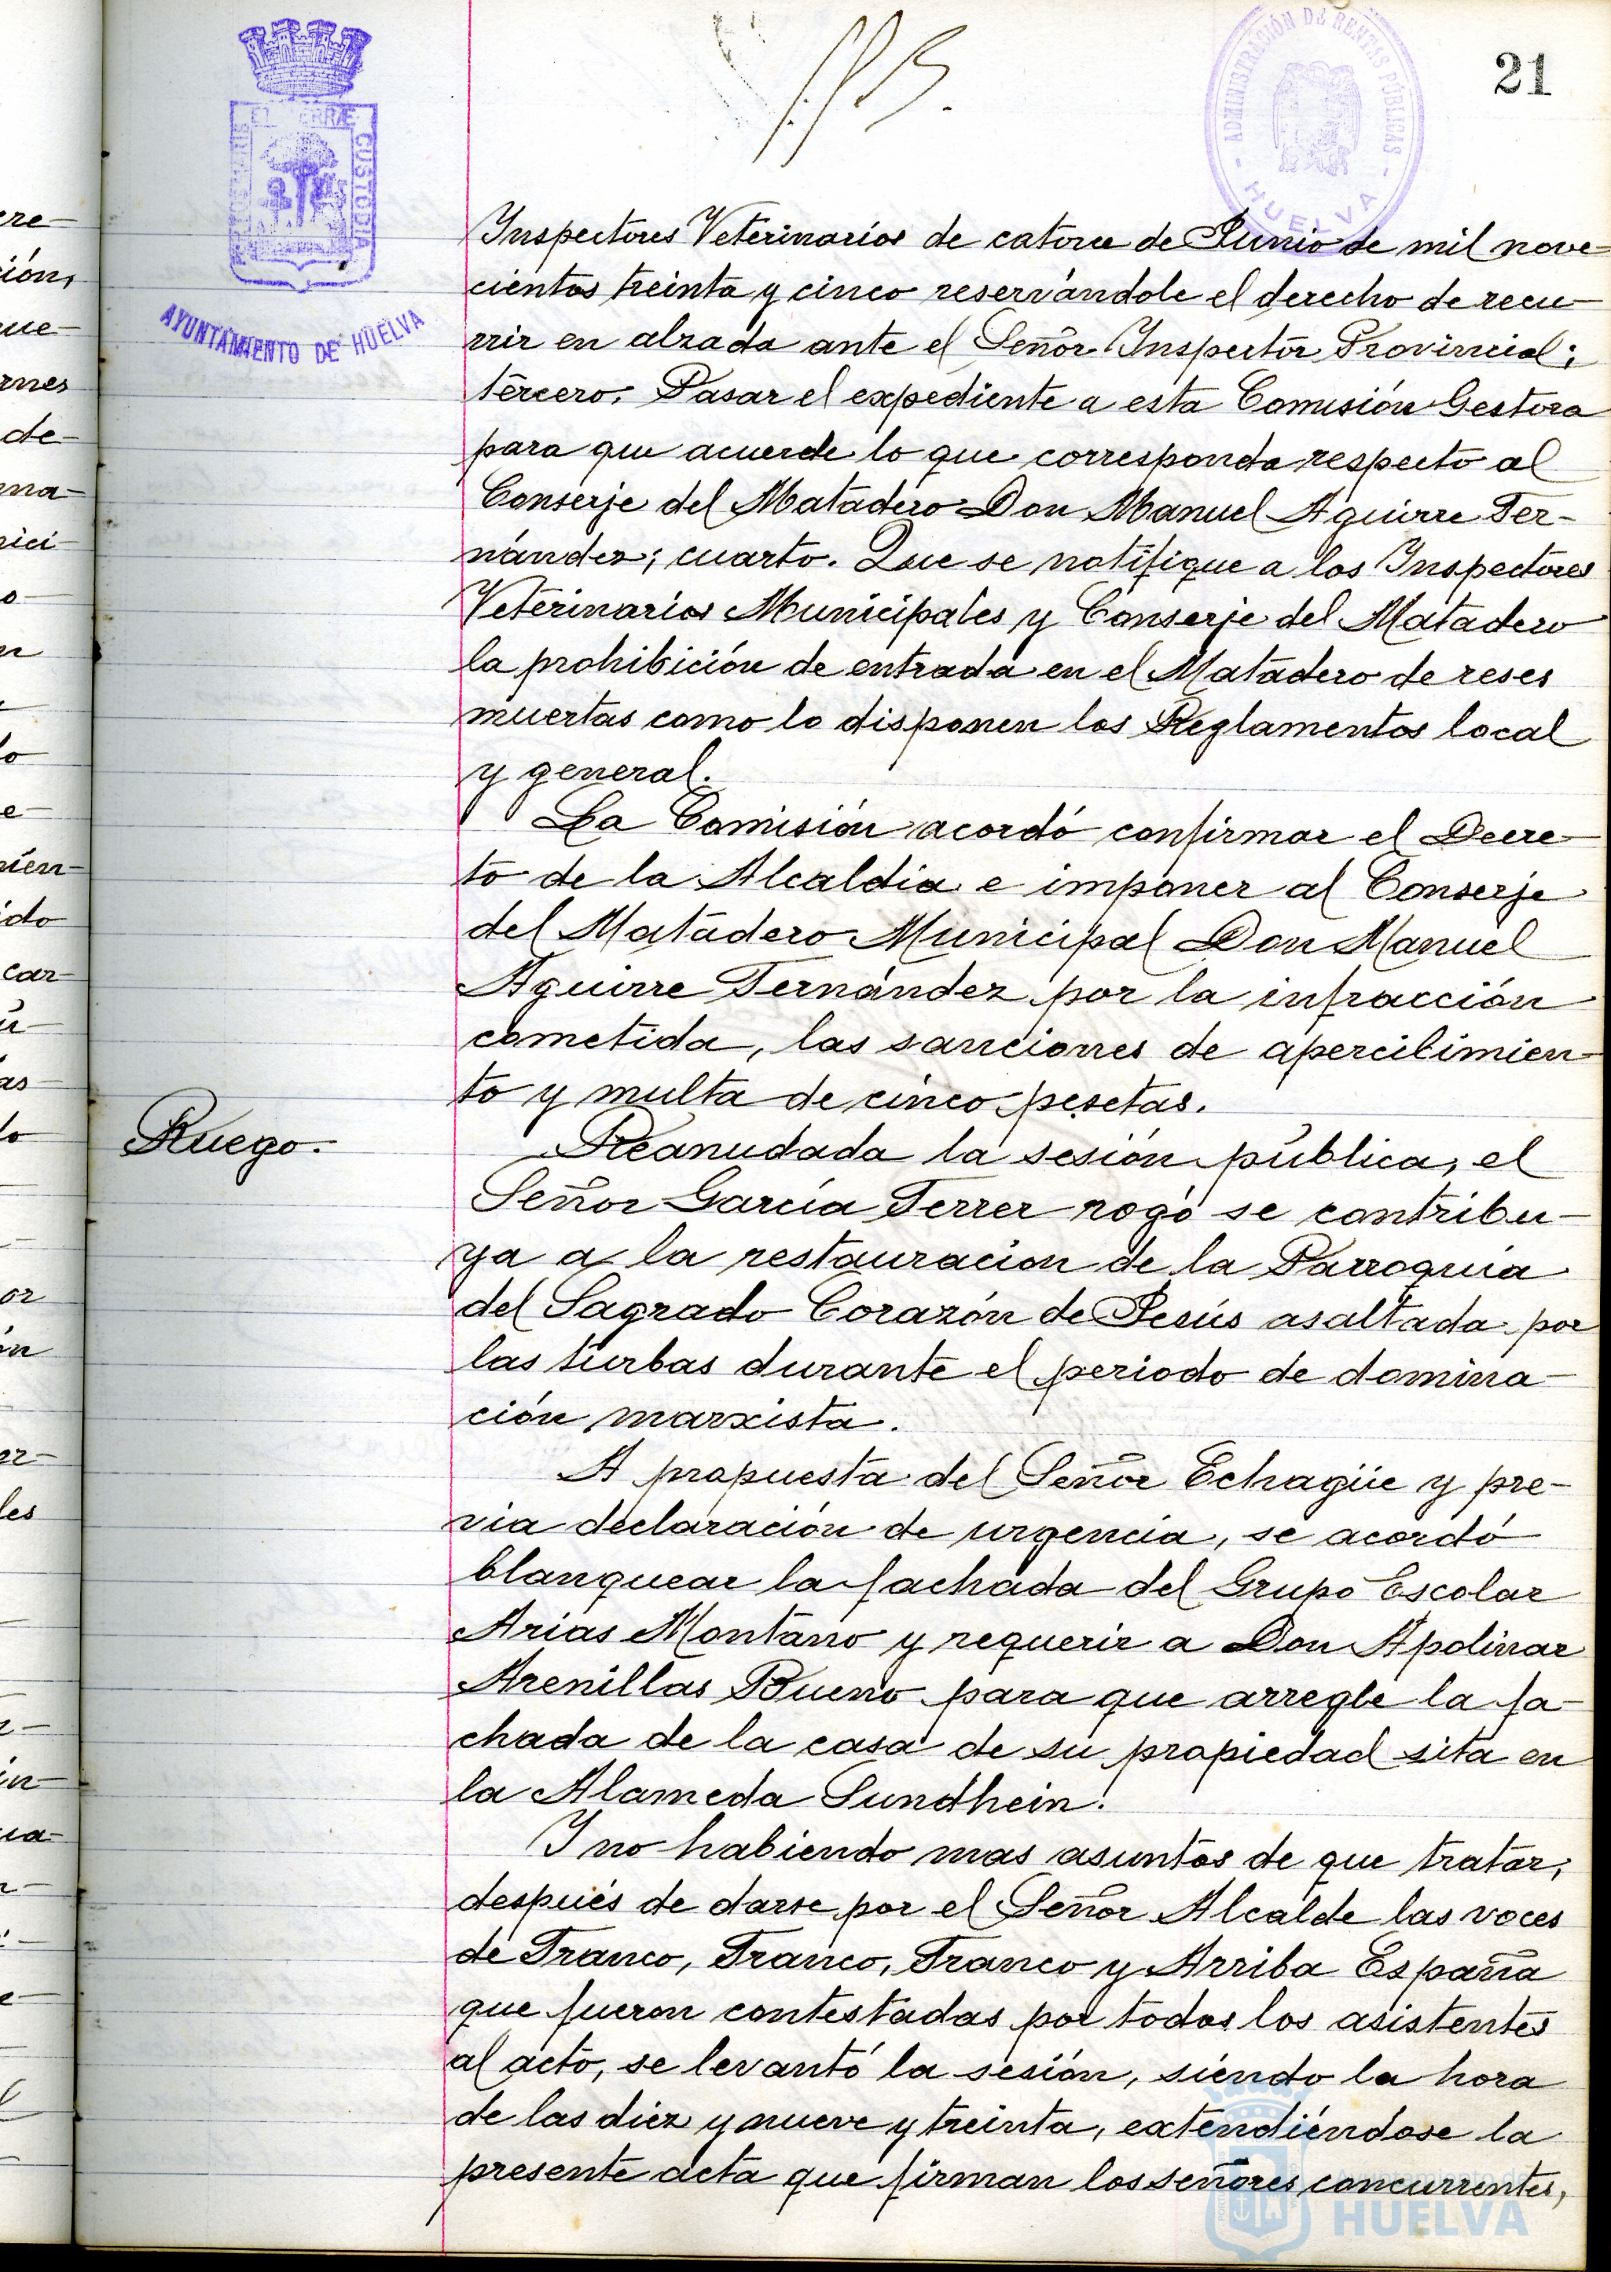 21
ADMINISTRACIÓN DE RENTAS PÚBLICAS
HUELVA
CUSTODIA
AYUNTAMIENTO DE HUELVA
Inspectores Veterinarios de catorce de Junio de mil nove-
cientos treinta y cinco reservándole el derecho de recu-
rrir en alzada ante el Señor Inspector Provincial;
tercero. Pasar el expediente a esta Comisión Gestora
para que acuerde lo que corresponda respecto al
Conserje del Matadero Don Manuel Aguirre Fer-
nández; cuarto. Que se notifique a los Inspectores
Veterinarios Municipales y Conserje del Matadero
la prohibición de entrada en el Matadero de reses
muertas como lo disponen los Reglamentos local
y general.
La Comisión acordó confirmar el Decre-
to de la Alcaldia e imponer al Conserje
del Matadero Municipal Don Manuel
Aguirre Fernández por la infracción
cometida, las sanciones de apercibimien-
to y multa de cinco pesetas.
Ruego.
Reanudada la sesión pública, el
Señor García Ferrer rogó se contribu-
ya a la restauracion de la Parroquia
del Sagrado Corazón de Jesús asaltada por
las turbas durante el periodo de domina-
ción marxista.
A propuesta del Señor Echagüe y pre-
via declaración de urgencia, se acordó
blanquear la fachada del Grupo Escolar
Arias Montano y requerir a Don Apolinar
Arenillas Bueno para que arregle la fa-
chada de la casa de su propiedad sita en
la Alameda Sundhein.
Y no habiendo mas asuntos de que tratar,
después de darse por el Señor Alcalde las voces
de Franco, Franco, Franco y Arriba España
que fueron contestadas por todos los asistentes
al acto, se levantó la sesión, siendo la hora
de las diez y nueve y treinta, extendiéndose la
presente acta que firman los señores concurrentes,
Ayuntamiento de
HUELVA